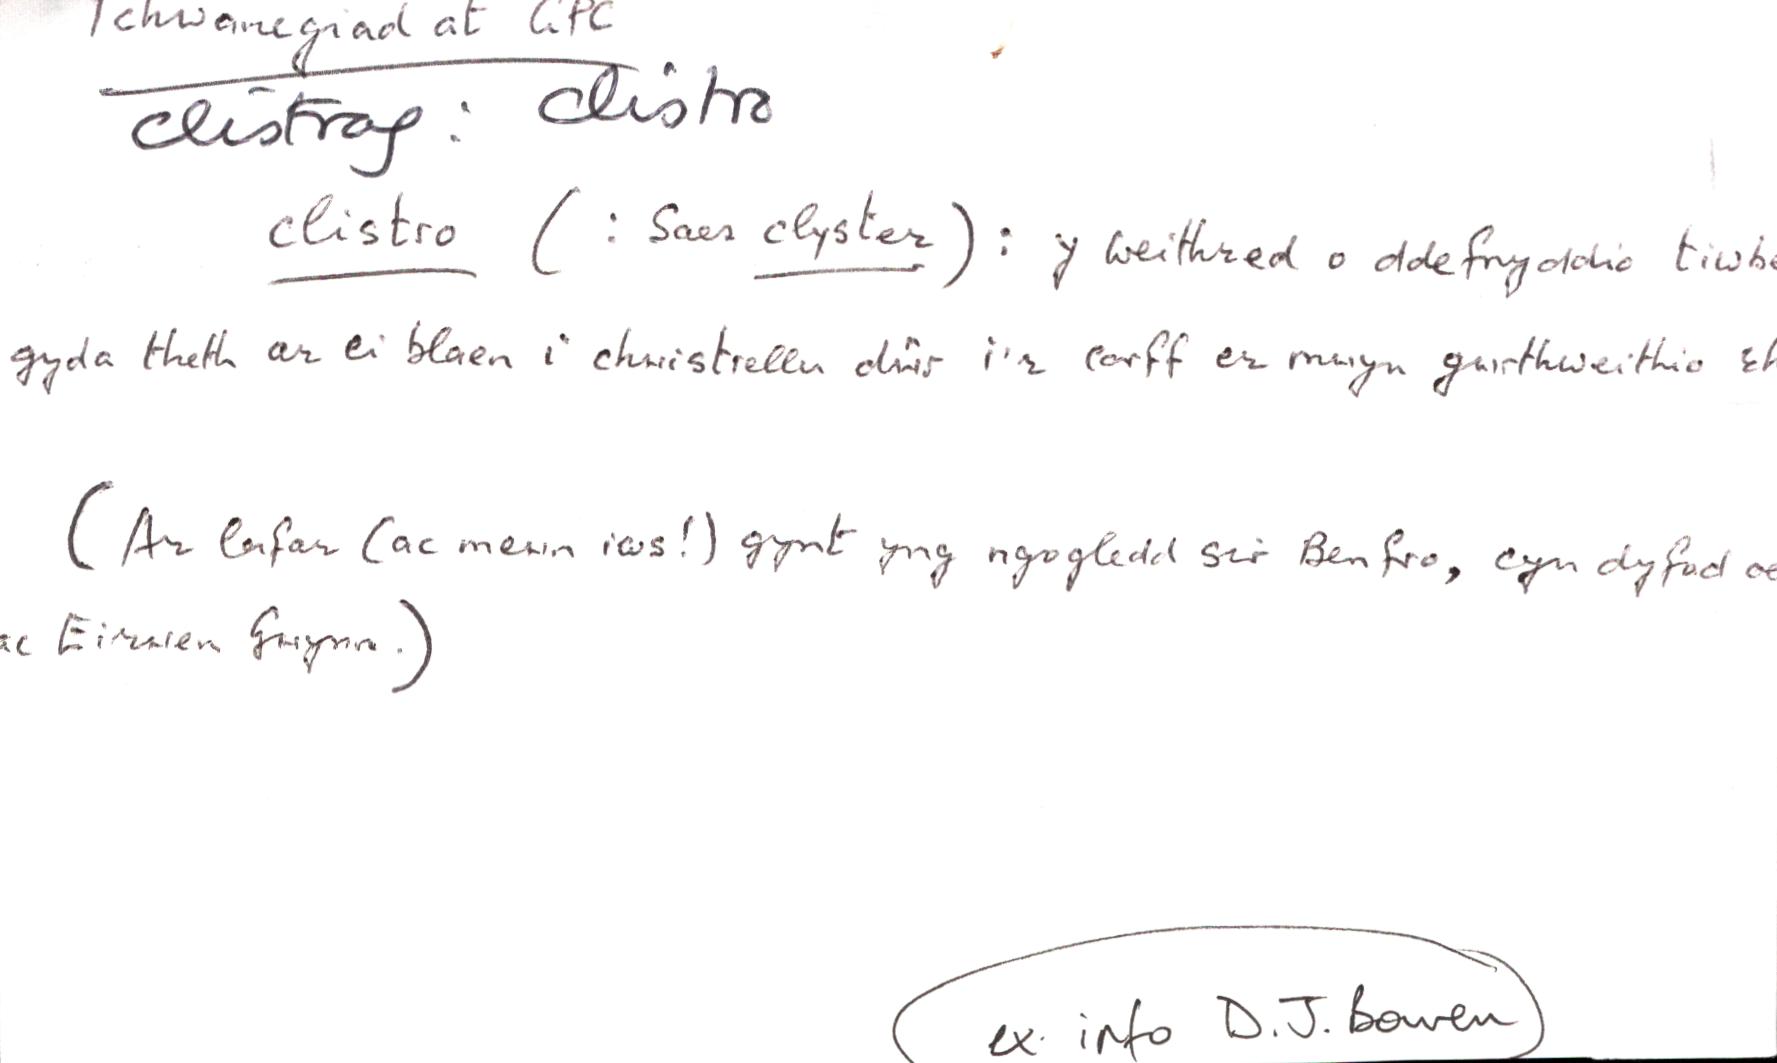 Ychwanegiad at GPC
clistraf: clistro
clistro (: Saes clyster): y weithred o ddefnyddio tiwb
gyda theth ar ei blaen i chwistrellu dŵr i'r corff er mwyn gwrthweithio rh
(Ar lafar (ac mewn iws!) gynt yng ngogledd sir Benfro, cyn dyfod
ac Eirwen Gwynn.)
ex. info D.J. Bowen